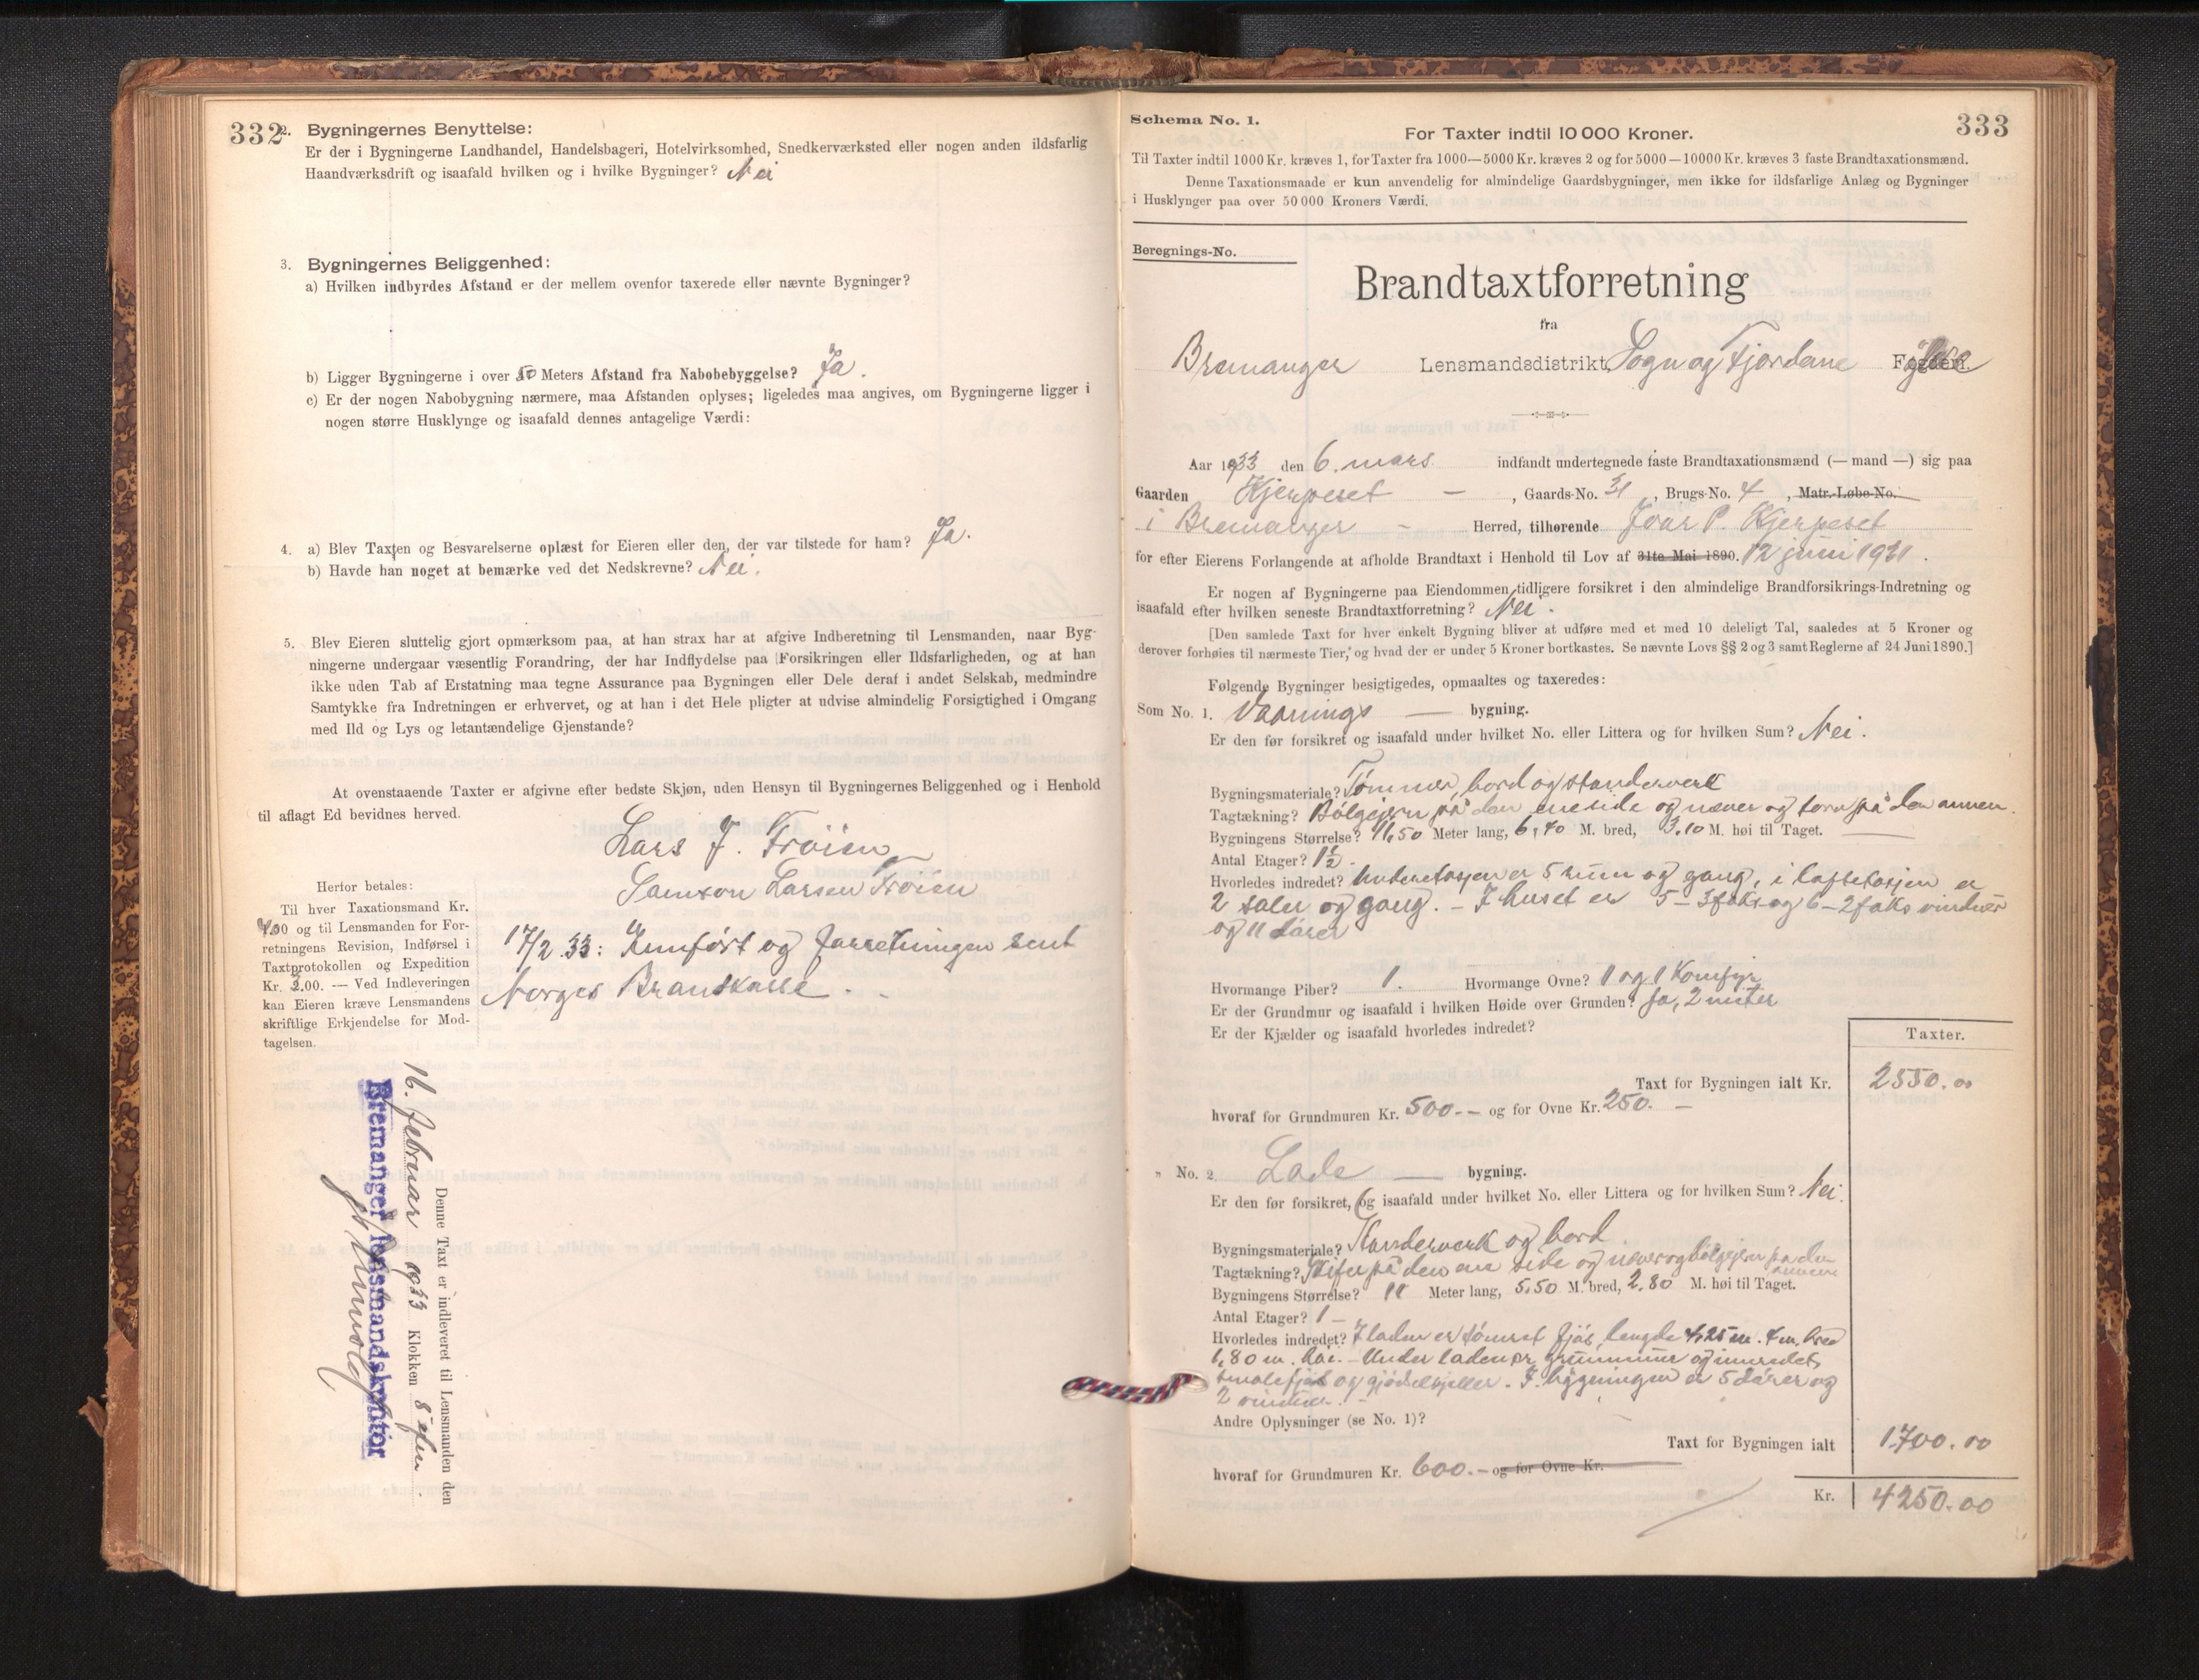 332
2. Bygningernes Benyttelse:
Er der i Bygningerne Landhandel, Handelsbageri, Hotelvirksomhed, Snedkerværksted eller nogen anden ildsfarlig
Haandværksdrift og isaafald hvilken og i hvilke Bygninger? Nei
3. Bygningernes Beliggenhed:
a) Hvilken indbyrdes Afstand er der mellem ovenfor taxerede eller nævnte Bygninger?
b) Ligger Bygningerne i over 50 Meters Afstand fra Nabobebyggelse? Ja.
c) Er der nogen Nabobygning nærmere, maa Afstanden oplyses; ligeledes maa angives, om Bygningerne ligger i
nogen større Husklynge og isaafald dennes antagelige Værdi:
4. a) Blev Taxten og Besvarelserne oplæst for Eieren eller den, der var tilstede for ham? Ja.
b) Havde han noget at bemærke ved det Nedskrevne? Nei.
5. Blev Eieren sluttelig gjort opmærksom paa, at han strax har at afgive Indberetning til Lensmanden, naar Byg-
ningerne undergaar væsentlig Forandring, der har Indflydelse paa Forsikringen eller Ildsfarligheden, og at han
ikke uden Tab af Erstatning maa tegne Assurance paa Bygningen eller Dele deraf i andet Selskab, medmindre
Samtykke fra Indretningen er erhvervet, og at han i det Hele pligter at udvise almindelig Forsigtighed i Omgang
med Ild og Lys og letantændelige Gjenstande?
At ovenstaaende Taxter er afgivne efter bedste Skjøn, uden Hensyn til Bygningernes Beliggenhed og i Henhold
til aflagt Ed bevidnes herved.
Lars J. Fröien
Samson Larsen Fröien
Herfor betales:
Til hver Taxationsmand Kr.
4.00 og til Lensmanden for For-
retningens Revision, Indførsel i
Taxtprotokollen og Expedition
Kr. 2.00. — Ved Indleveringen
kan Eieren kræve Lensmandens
skriftlige Erkjendelse for Mod-
tagelsen.
17/2.33: Innført og forretningen sent
Norges Brankasse.
Denne Taxt er indleveret til Lensmanden den
16. februar 1933 Klokken 8 efm.
Bremanger lensmandskontor
333
Schema No. 1.
For Taxter indtil 10 000 Kroner.
Til Taxter indtil 1000 Kr. kræves 1, for Taxter fra 1000—5000 Kr. kræves 2 og for 5000—10000 Kr. kræves 3 faste Brandtaxationsmænd.
Denne Taxationsmaade er kun anvendelig for almindelige Gaardsbygninger, men ikke for ildsfarlige Anlæg og Bygninger
i Husklynger paa over 50 000 Kroners Værdi.
Beregnings-No.
Brandtaxtforretning
fra
Bremanger Lensmandsdistrikt, Sogn og Fjordane
Aar 1933 den 6. mars indfandt undertegnede faste Brandtaxationsmænd (— mand —) sig paa
Gaarden Kjerpeset - , Gaards-No. 31, Brugs-No. 4, Matr.-Løbe-No.
i Bremanger - Herred, tilhørende Joar P. Kjerpeset
for efter Eierens Forlangende at afholde Brandtaxt i Henhold til Lov af 31te Mai 1890. 12 juni 1931.
Er nogen af Bygningerne paa Eiendommen tidligere forsikret i den almindelige Brandforsikrings-Indretning og
isaafald efter hvilken seneste Brandtaxtforretning? Nei.
[Den samlede Taxt for hver enkelt Bygning bliver at udføre med et med 10 deleligt Tal, saaledes at 5 Kroner og
derover forhøies til nærmeste Tier, og hvad der er under 5 Kroner bortkastes. Se nævnte Lovs §§ 2 og 3 samt Reglerne af 24 Juni 1890.]
Følgende Bygninger besigtigedes, opmaaltes og taxeredes:
Som No. 1. Vaanings — bygning.
Er den før forsikret og isaafald under hvilket No. eller Littera og for hvilken Sum? Nei.
Bygningsmateriale? Tömmer, bord og standerverk
Tagtækning? Bölgjern på den ene side og næver og torv på den annen.
Bygningens Størrelse? 11,50 Meter lang, 6,70 M. bred, 3,10 M. høi til Taget.
Antal Etager? 1½.
Hvorledes indredet? Underetasjen er 5 rum og gang, i loftetasjen er
2 saler og gang. - I huset er 5-3faks og 6-2faks vinduer
og 11 dörer
Hvormange Piber? 1. Hvormange Ovne? 1 og 1 Komfyr
Er der Grundmur og isaafald i hvilken Høide over Grunden? Ja, 2 meter
Er der Kjælder og isaafald hvorledes indredet?
Taxter.
Taxt for Bygningen ialt Kr. 2550.00
hvoraf for Grundmuren Kr. 500.- og for Ovne Kr. 250.-
" No. 2 Lade — bygning.
Er den før forsikret, og isaafald under hvilket No. eller Littera og for hvilken Sum? Nei.
Bygningsmateriale? Standerverk og bord
Tagtækning? Skifer på den ene side og næver og bölgjern på den annen
Bygningens Størrelse? 11 Meter lang, 5,50 M. bred, 2,80 M. høi til Taget.
Antal Etager? 1 -
Hvorledes indredet? I laden er tömret fjös, lengde 4,25 m. 4 m. bred
1,80 m. höi. - Under laden er grunnmur og innredet
smalefjös og gjödselkjeller. I bygningen er 5 dörer og
2 vinduer. -
Andre Oplysninger (se No. 1)?
Taxt for Bygningen ialt 1700.00
hvoraf for Grundmuren Kr. 600.- og for Ovne Kr.
Kr. 4250.00